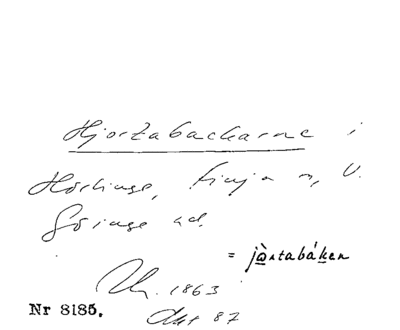 Hjortabackarne i
Hörlinge, Finja sn, V.
Göinge hd.
= jàrtabáken
1863
Nr 8185.
87